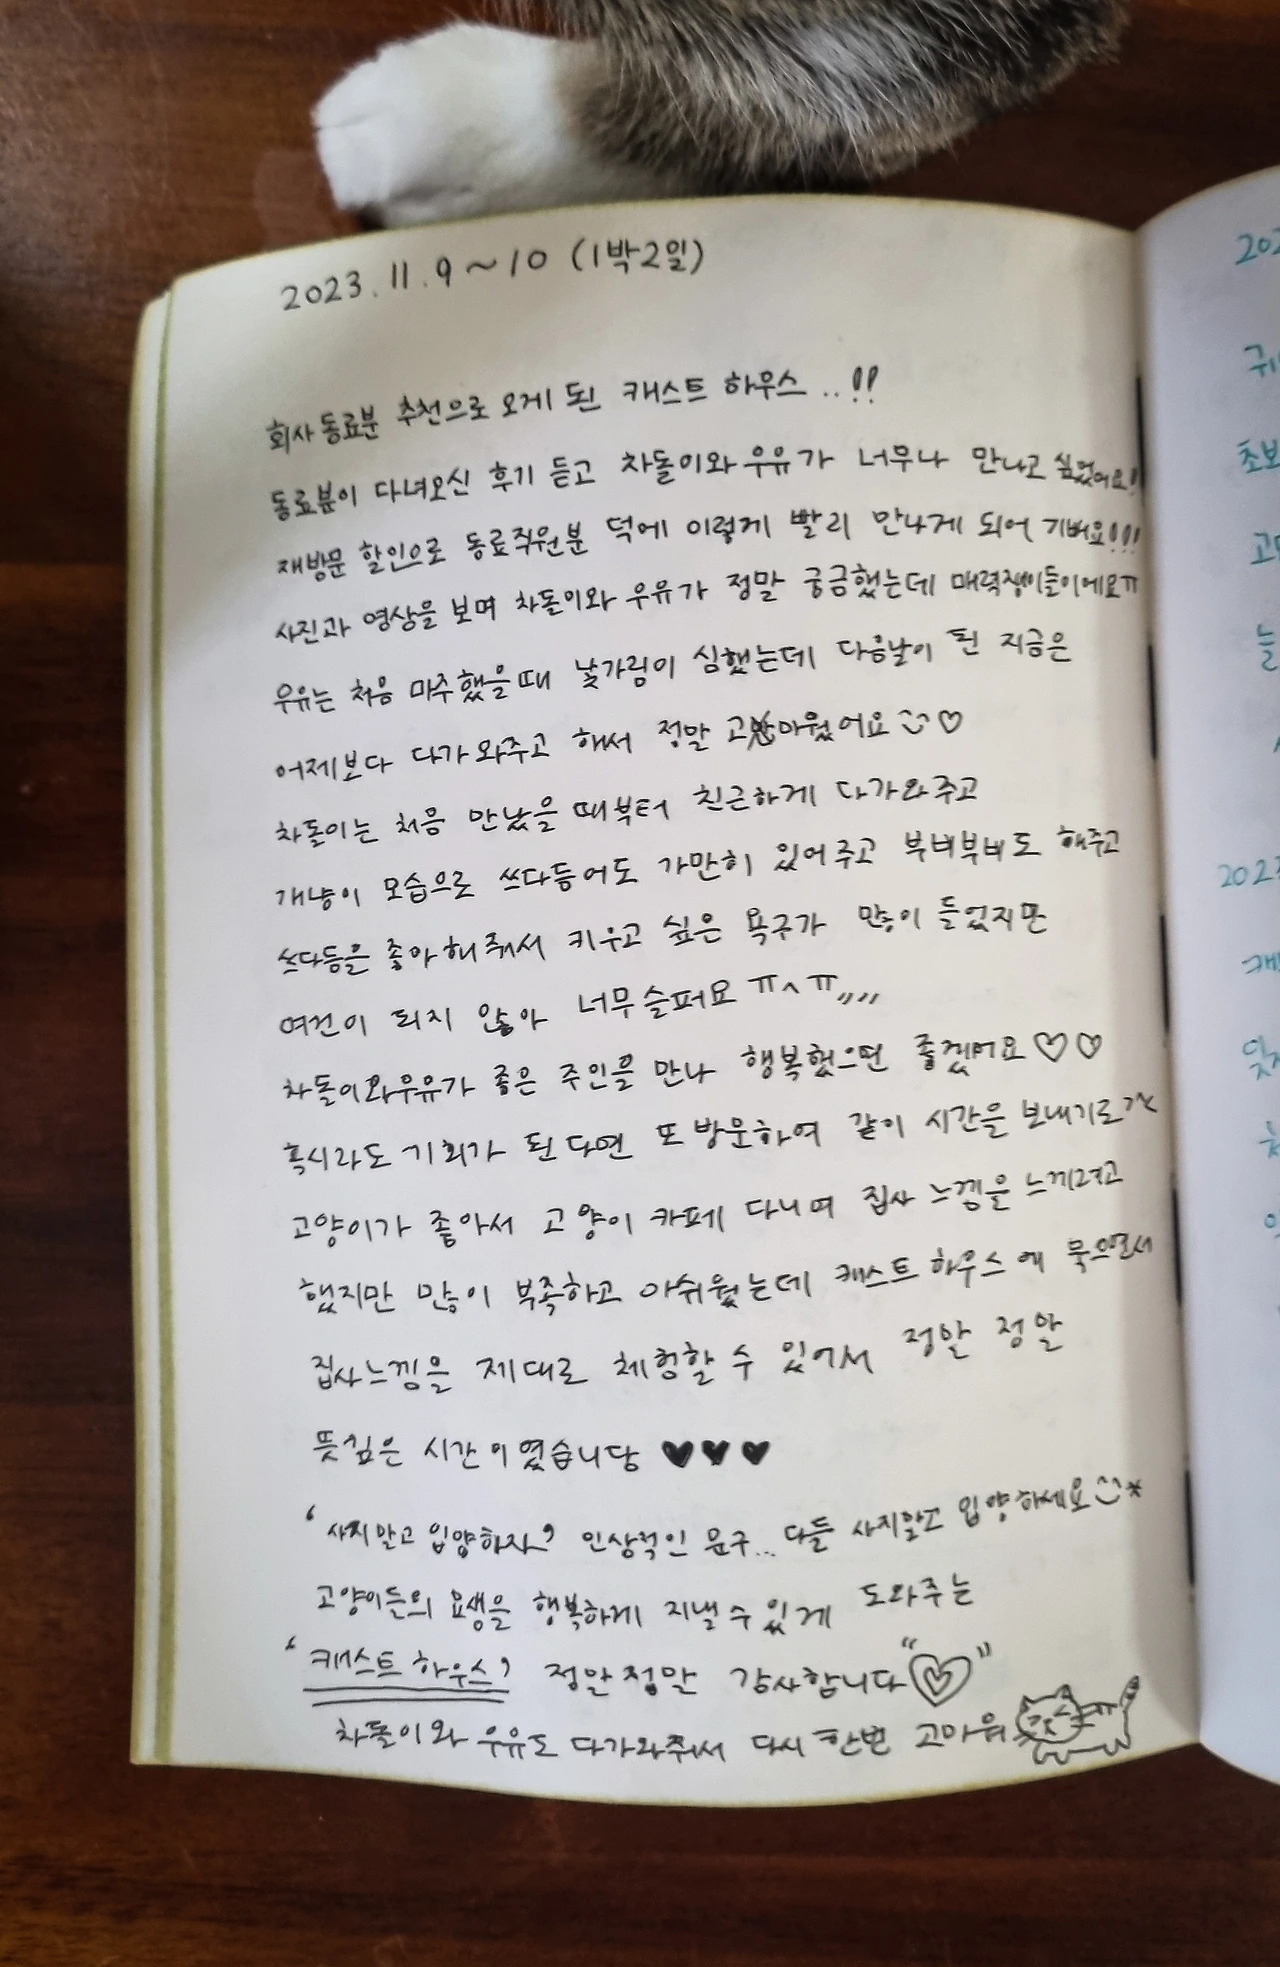 2023. 11. 9 ~ 10 (1박2일)
회사 동료분 추천으로 오게 된 캐스트 하우스..!!
동료분이 다녀오신 후기 듣고 차돌이와 우유가 너무나 만나고 싶었어요!
재방문 할인으로 동료직원분 덕에 이렇게 빨리 만나게 되어 기뻐요!!!
사진과 영상을 보며 차돌이와 우유가 정말 궁금했는데 매력쟁이들이에요ㅠ
우유는 처음 마주했을때 낯가림이 심했는데 다음날이 된 지금은
어제보다 다가와주고 해서 정말 고마웠어요 ♡
차돌이는 처음 만났을 때부터 친근하게 다가와주고
개냥이 모습으로 쓰다듬어도 가만히 있어주고 부비부비도 해주고
쓰다듬을 좋아해줘서 키우고 싶은 욕구가 많이 들었지만
여건이 되지 않아 너무슬퍼요 ㅠ^ㅠ,,,,
차돌이와우유가 좋은 주인을 만나 행복했으면 좋겠어요♡♡
혹시라도 기회가 된다면 또 방문하여 같이 시간을 보내기로^^
고양이가 좋아서 고양이 카페 다니며 집사 느낌을 느끼려고
했지만 많이 부족하고 아쉬웠는데 캐스트 하우스에 묵으면서
집사느낌을 제대로 체험할 수 있어서 정말 정말
뜻깊은 시간이였습니당 ♥♥♥
'사지말고 입양하자' 인상적인 문구... 다들 사지말고 입양하세요
고양이들의 묘생을 행복하게 지낼 수 있게 도와주는
'캐스트 하우스' 정말정말 감사합니다 "♡"
차돌이와 우유도 다가와줘서 다시 한번 고마워
202
귀
초보
고
늘
202
캐
잊